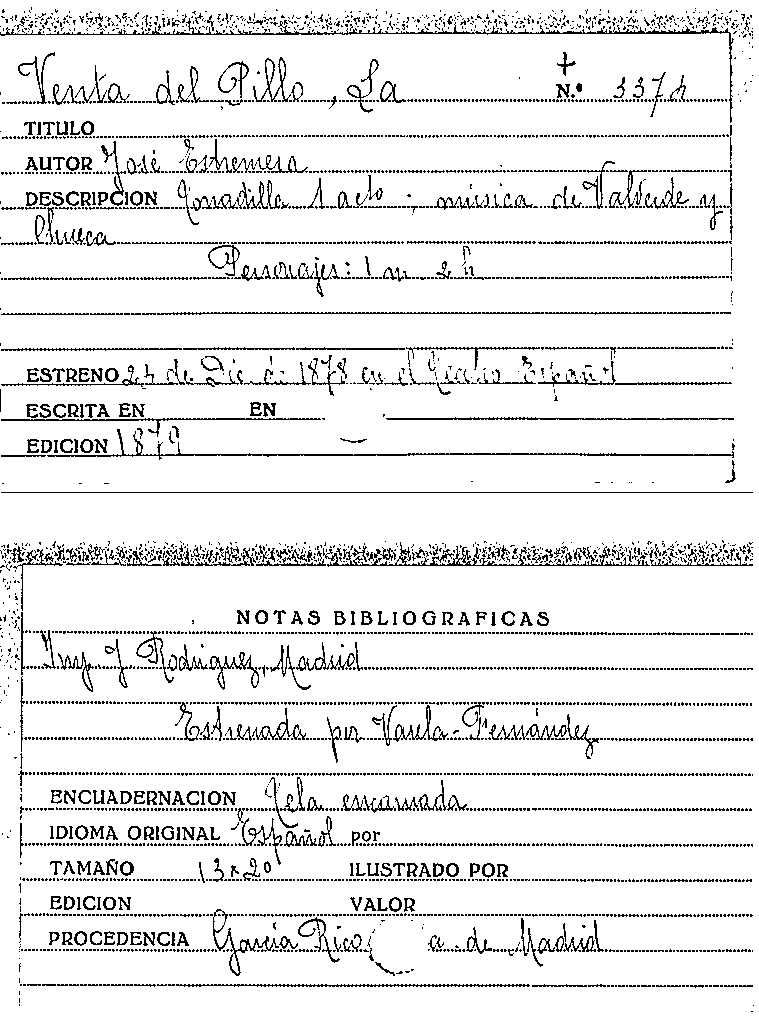 Venta del Pillo, La
+
N.º 3374
TITULO
AUTOR José Estremera
DESCRIPCION Tonadilla 1 acto; música de Valverde y
Chueca
Personajes: 1 m. 2 h
ESTRENO 24 de Dic. de 1878 en el Teatro Español
ESCRITA EN EN
EDICION 1879
NOTAS BIBLIOGRAFICAS
Imp. J. Rodriguez, Madrid
Estrenada por Varela-Fernández
ENCUADERNACION Tela encarnada
IDIOMA ORIGINAL Español por
TAMAÑO 13x20 ILUSTRADO POR
EDICION VALOR
PROCEDENCIA García Rico a. de Madrid